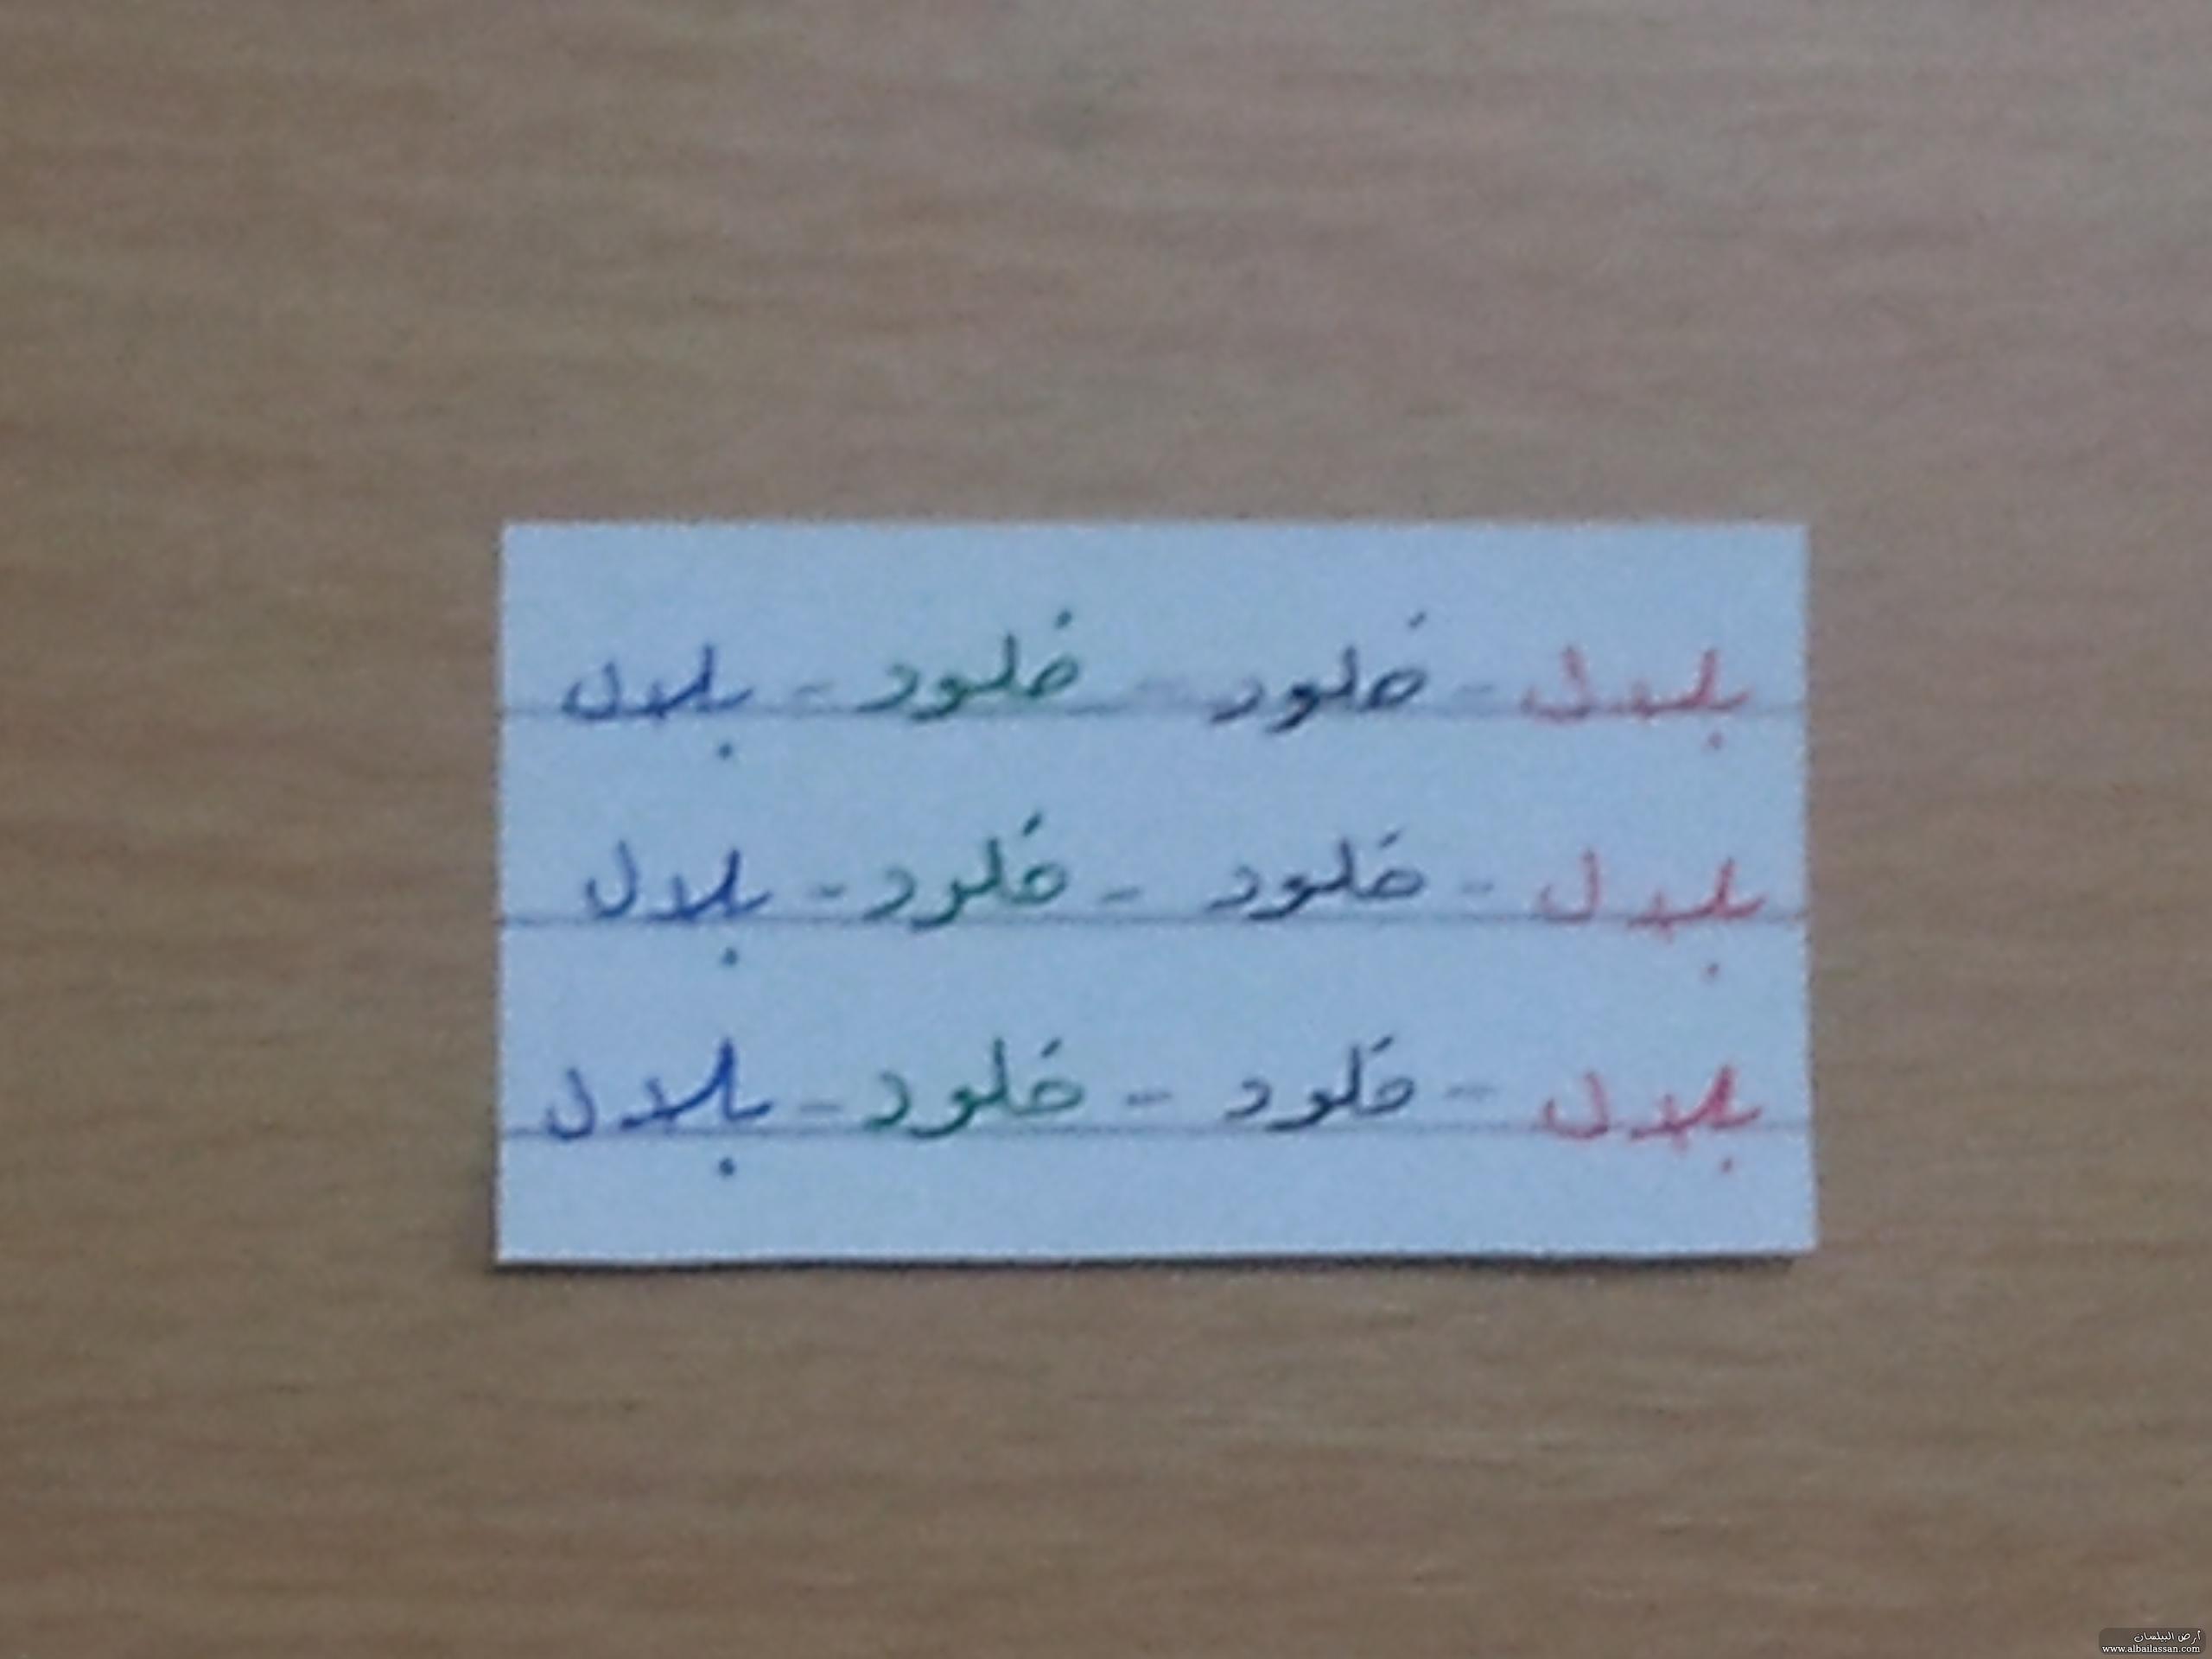 بلال - خلود - خلود - بلال
بلال - خلود - خلود - بلال
بلال - خلود - خلود - بلال
أرض البيلسان
www.albailassan.com